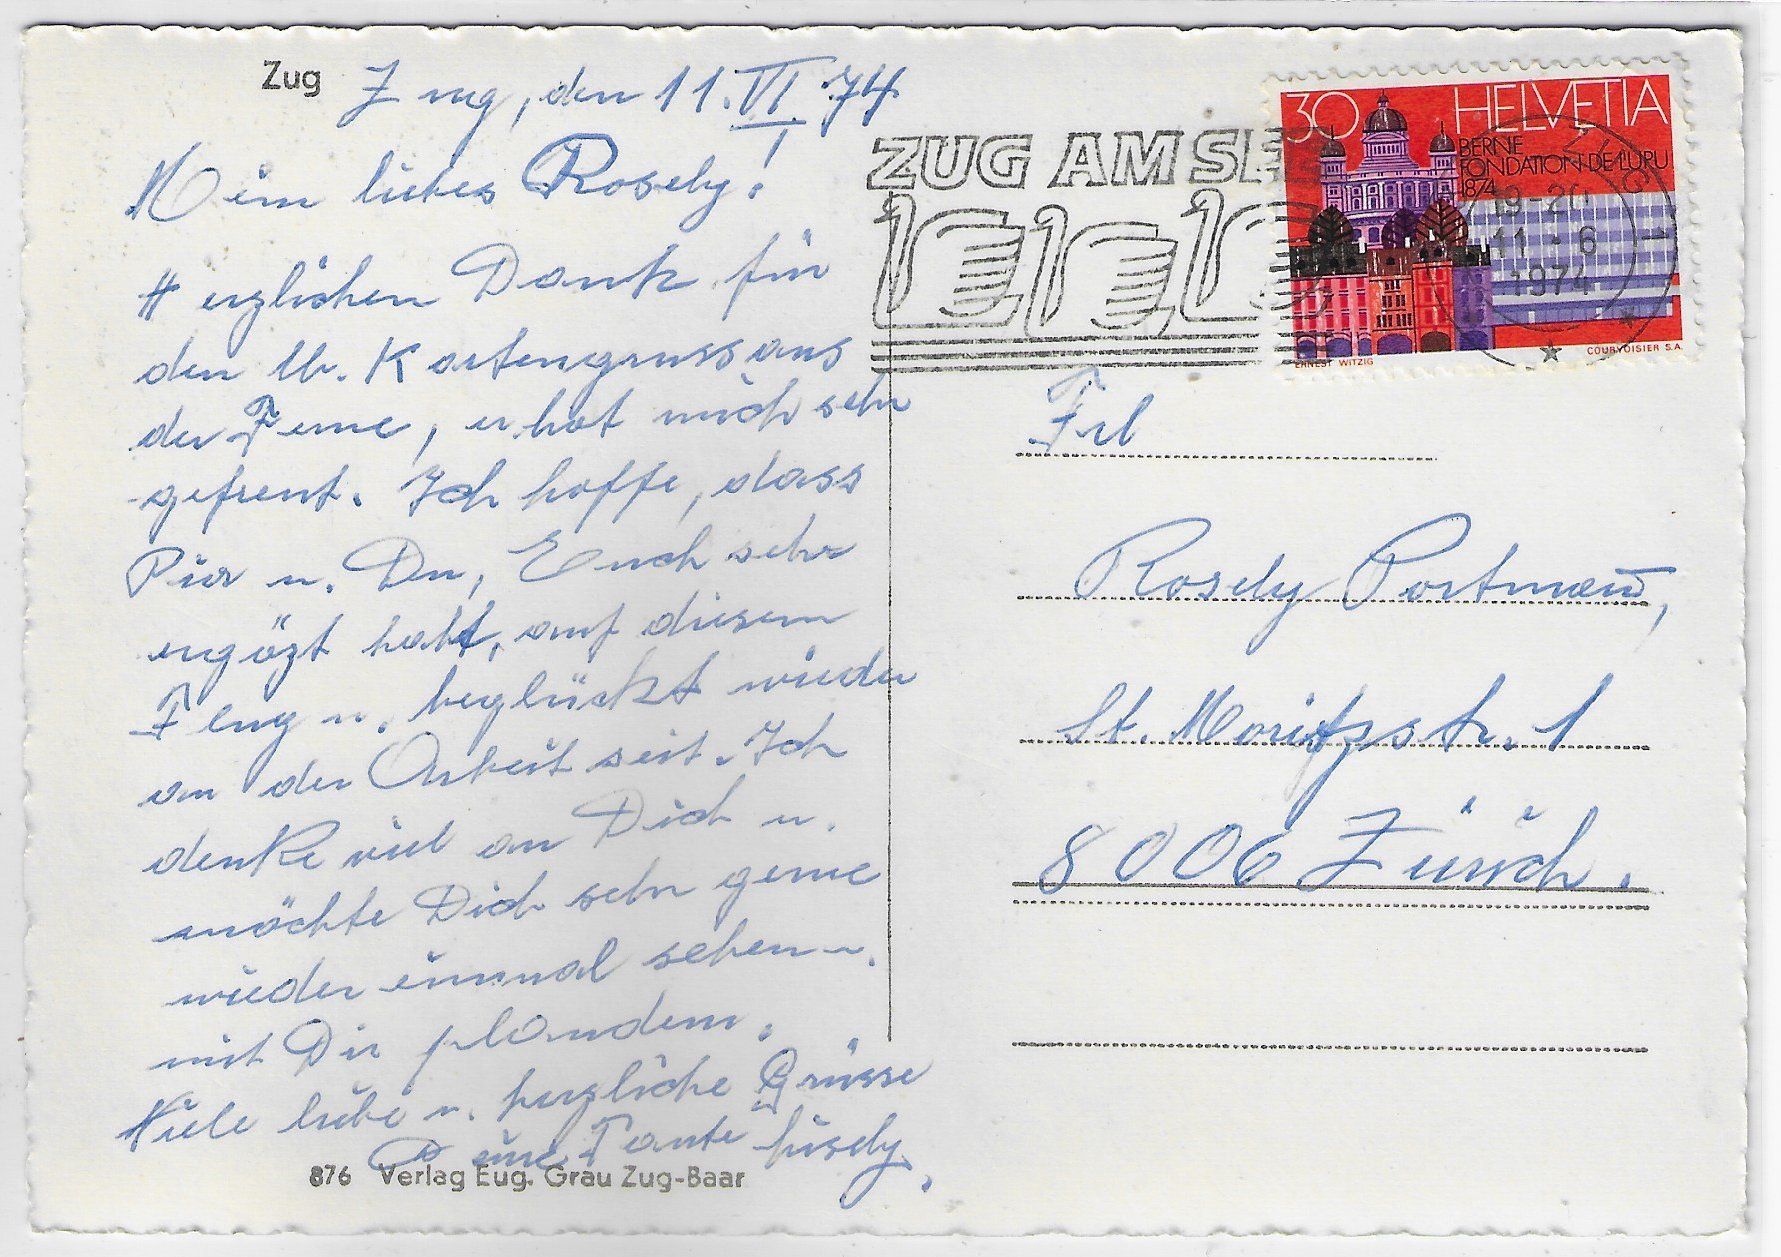 Zug
Zug, den 11. VI. 74.
Mein liebes Rosely!
Herzlichen Dank für
den lb. Kartengruss aus
der Ferne, er hat mich sehr
gefreut. Ich hoffe, dass
u. Du, Euch sehr
ergözt habt, auf diesem
Flug u. beglückt wieder
an der Arbeit seit. Ich
denke viel an Dich u.
möchte Dich sehr gerne
wieder einmal sehen u.
mit Dir plaudern.
Viele liebe u. herzliche Grüsse
Deine Tante Lisely.
876 Verlag Eug. Grau Zug-Baar
ZUG AM SEE
30 HELVETIA
BERNE
FONDATION DE L'UPU
1874
ERNEST WITZIG
COURVOISIER S.A.
ZUG 1
19-20
11-6
1974
Frl
Rosely Portmann,
St. Moritzstr. 1
8006 Zürich.